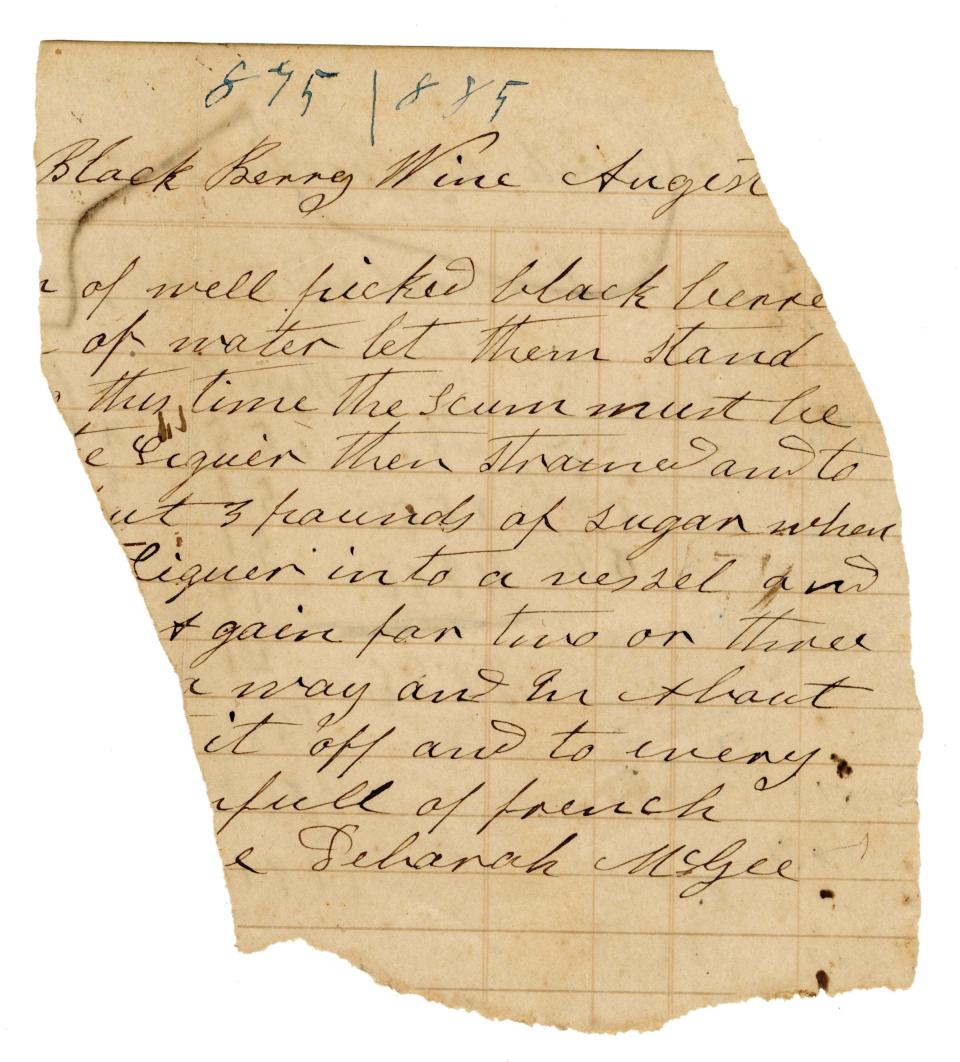 875 | 885
Black Berry Wine Augest
of well picked black berre
of water let them stand
this time the scum must be
e Liquer then strained and to
ut 3 pounds of sugar when
Liquer into a vessel and
A gain for two or three
a way and In About
it off and to every
full of french
e Deborah McGee